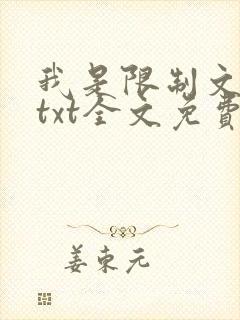 我是限制文
txt全文免費
姜東元